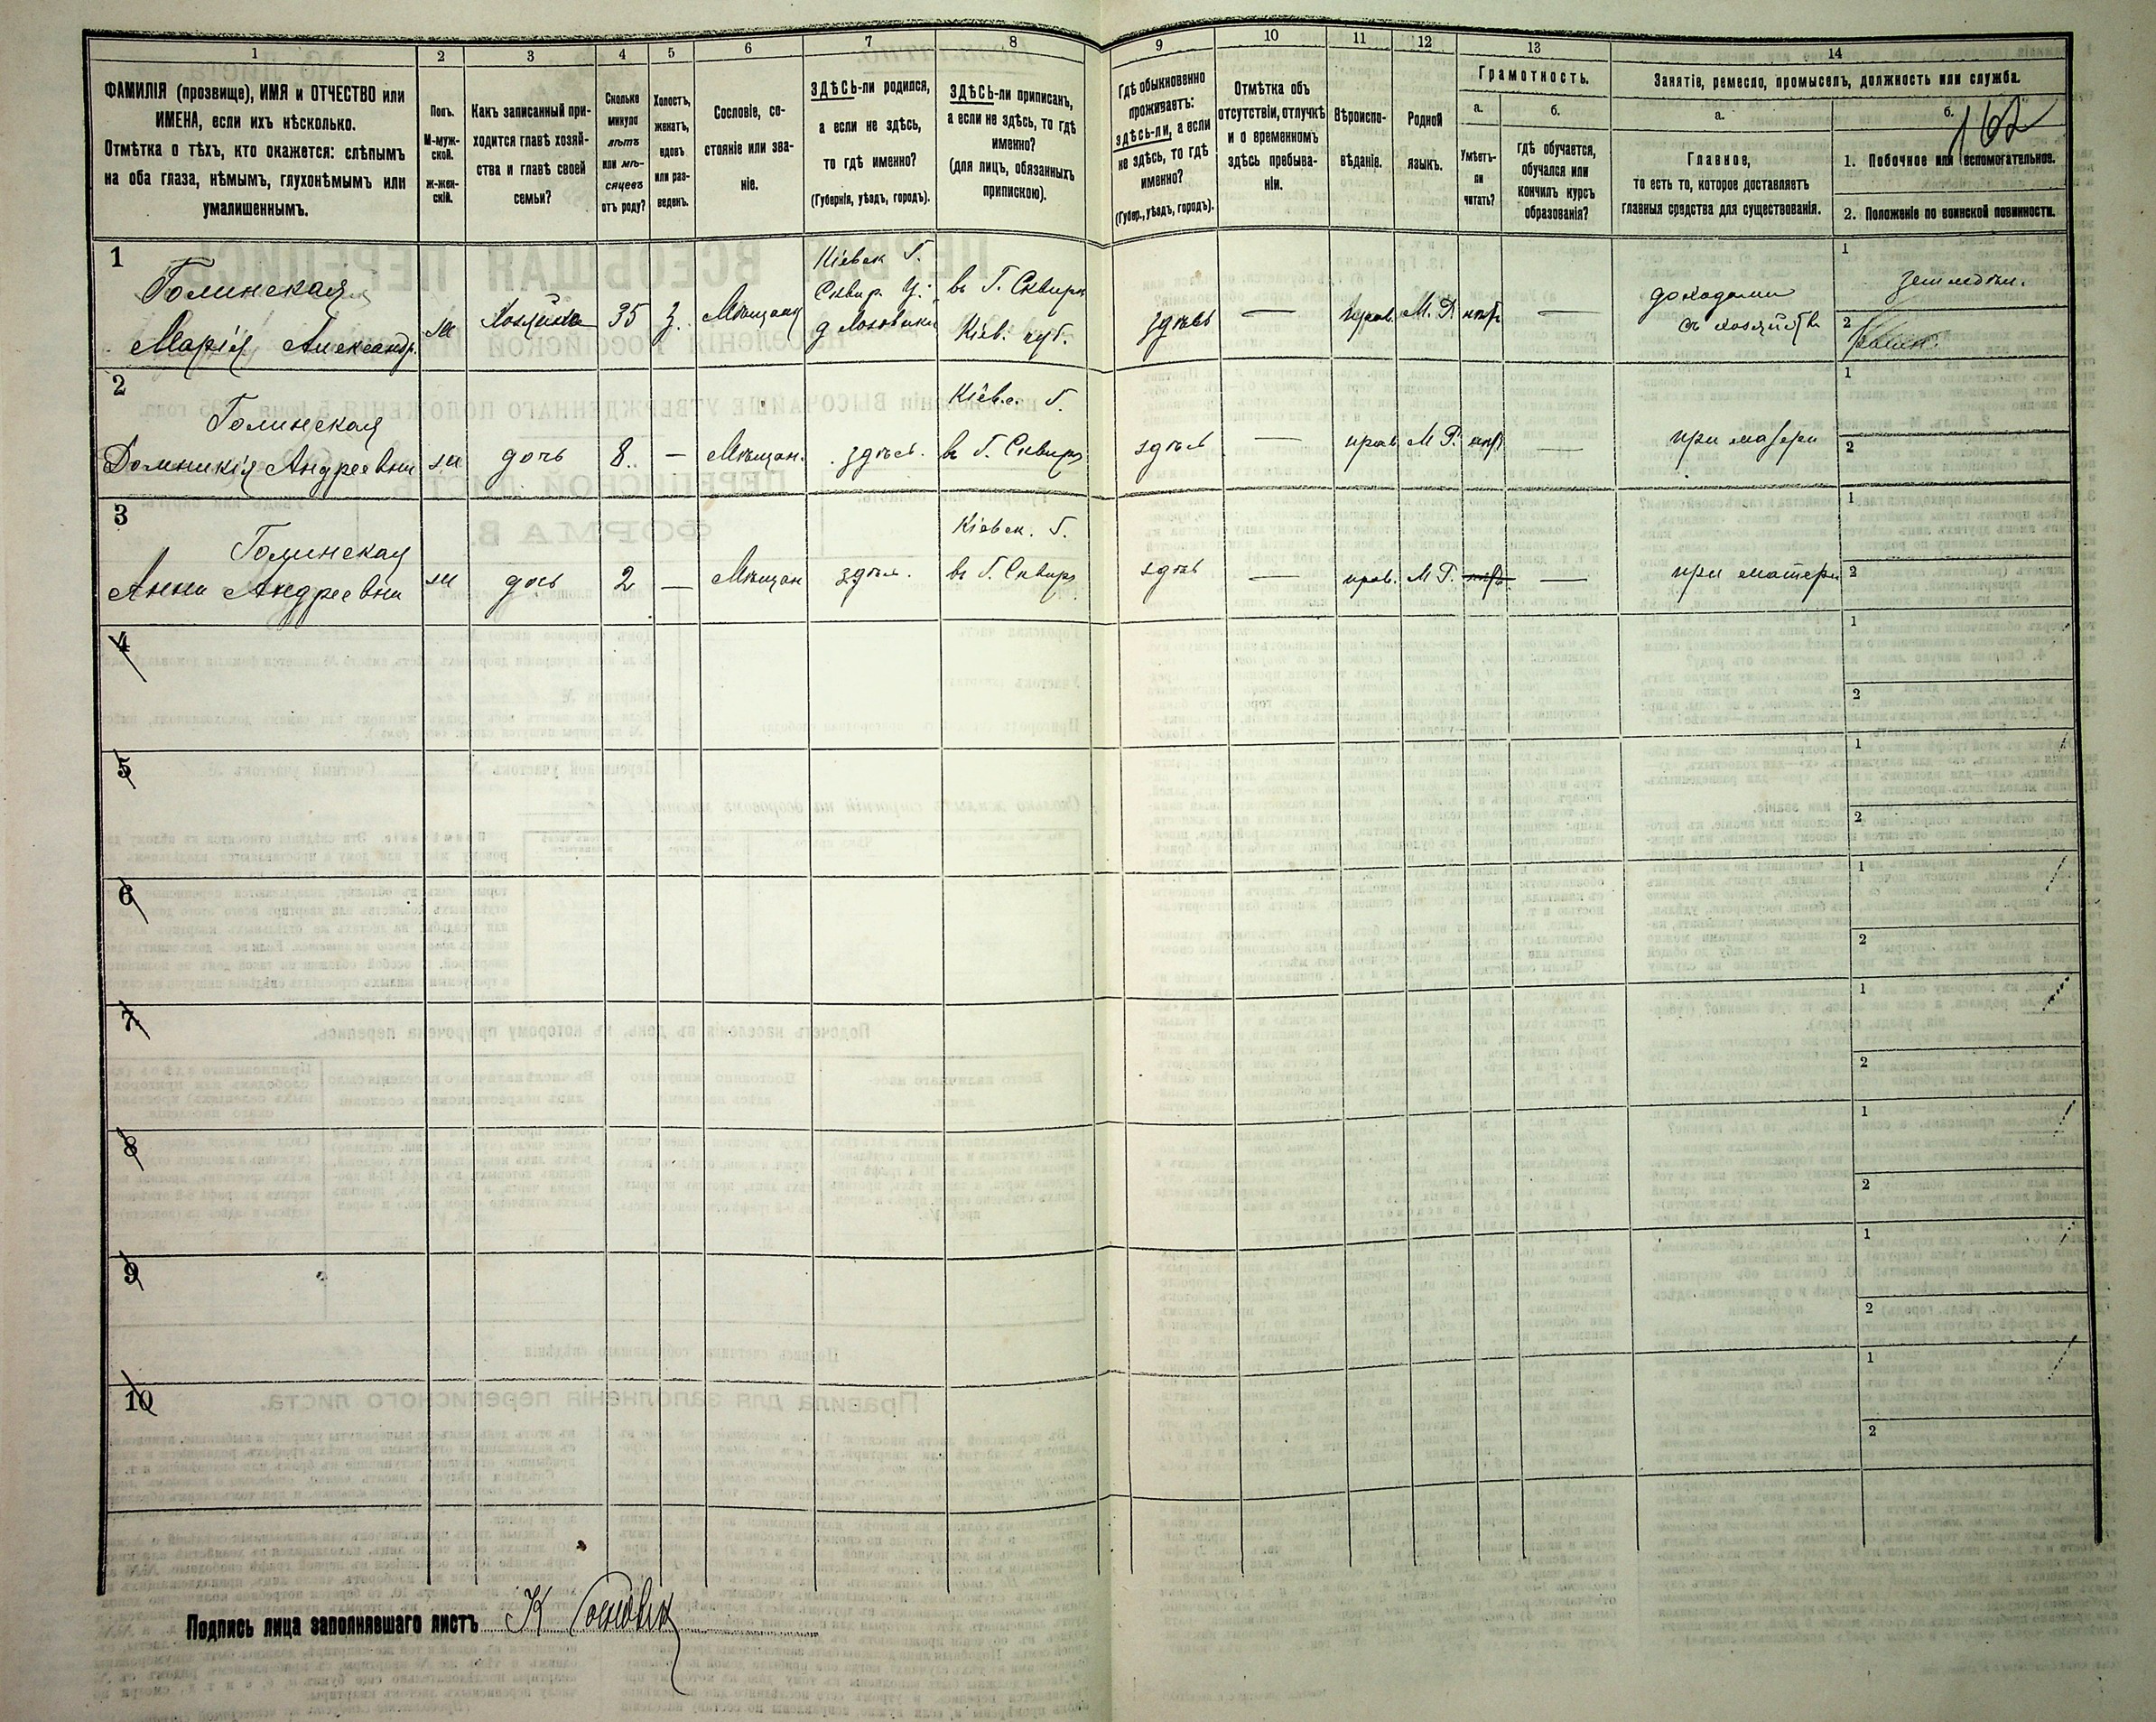 1
2
3
4
5
6
7
8
9
10
11
12
13
14
ФАМИЛІЯ (прозвище), ИМЯ и ОТЧЕСТВО или
ИМЕНА, если ихъ нѣсколько.
Отмѣтка о тѣхъ, кто окажется: слѣпымъ
на оба глаза, нѣмымъ, глухонѣмымъ или
умалишеннымъ.
Полъ.
М-муж-
ской.
ж-жен-
скій.
Какъ записанный при-
ходится главѣ хозяй-
ства и главѣ своей
семьи?
Сколько
минуло
лѣтъ
или мѣ-
сяцевъ
отъ роду?
Холостъ,
женатъ,
вдовъ
или раз-
веденъ.
Сословіе, со-
стояніе или зва-
ніе.
ЗДѢСЬ-ли родился,
а если не здѣсь,
то гдѣ именно?
(Губернія, уѣздъ, городъ).
ЗДѢСЬ-ли приписанъ,
а если не здѣсь, то гдѣ
именно?
(для лицъ, обязанныхъ
припискою).
Гдѣ обыкновенно
проживаетъ:
здѣсь-ли, а если
не здѣсь, то гдѣ
именно?
(Губер., уѣздъ, городъ).
Отмѣтка объ
отсутствіи, отлучкѣ
и о временномъ
здѣсь пребыва-
ніи.
Вѣроиспо-
вѣданіе.
Родной
языкъ.
Грамотность.
а.
б.
Умѣетъ-
ли
читать?
гдѣ обучается,
обучался или
кончилъ курсъ
образованія?
Занятіе, ремесло, промыселъ, должность или служба.
а.
б.
162
Главное,
то есть то, которое доставляетъ
главныя средства для существованія.
1. Побочное или вспомогательное.
2. Положеніе по воинской повинности.
1
Голинская
Марія Александр.
Хозяйка
35
Мѣщанка
Кіевск Г.
Сквир. У.
въ Г. Сквирѣ
Кіев. губ.
здѣсь
—
прав.
М. Р.
нѣтъ
—
доходами
съ хозяйства
1
земледѣл.
2
2
Голинская
Домникія Андреевна
дочь
8.
—
Мѣщан.
здѣсь.
Кіевс. Г.
въ Г. Сквирѣ
здѣсь
—
прав
М Р.
нѣтъ
—
при матери
1
2
3
Голинская
Анна Андреевна
дочь
2
—
Мѣщан
здѣсь.
Кіевск. Г.
въ Г. Сквирѣ
здѣсь
—
прав.
М Р.
—
при матери
1
2
4
1
2
5
1
2
6
1
2
7
1
2
8
1
2
9
1
2
10
1
2
Подпись лица заполнявшаго листъ